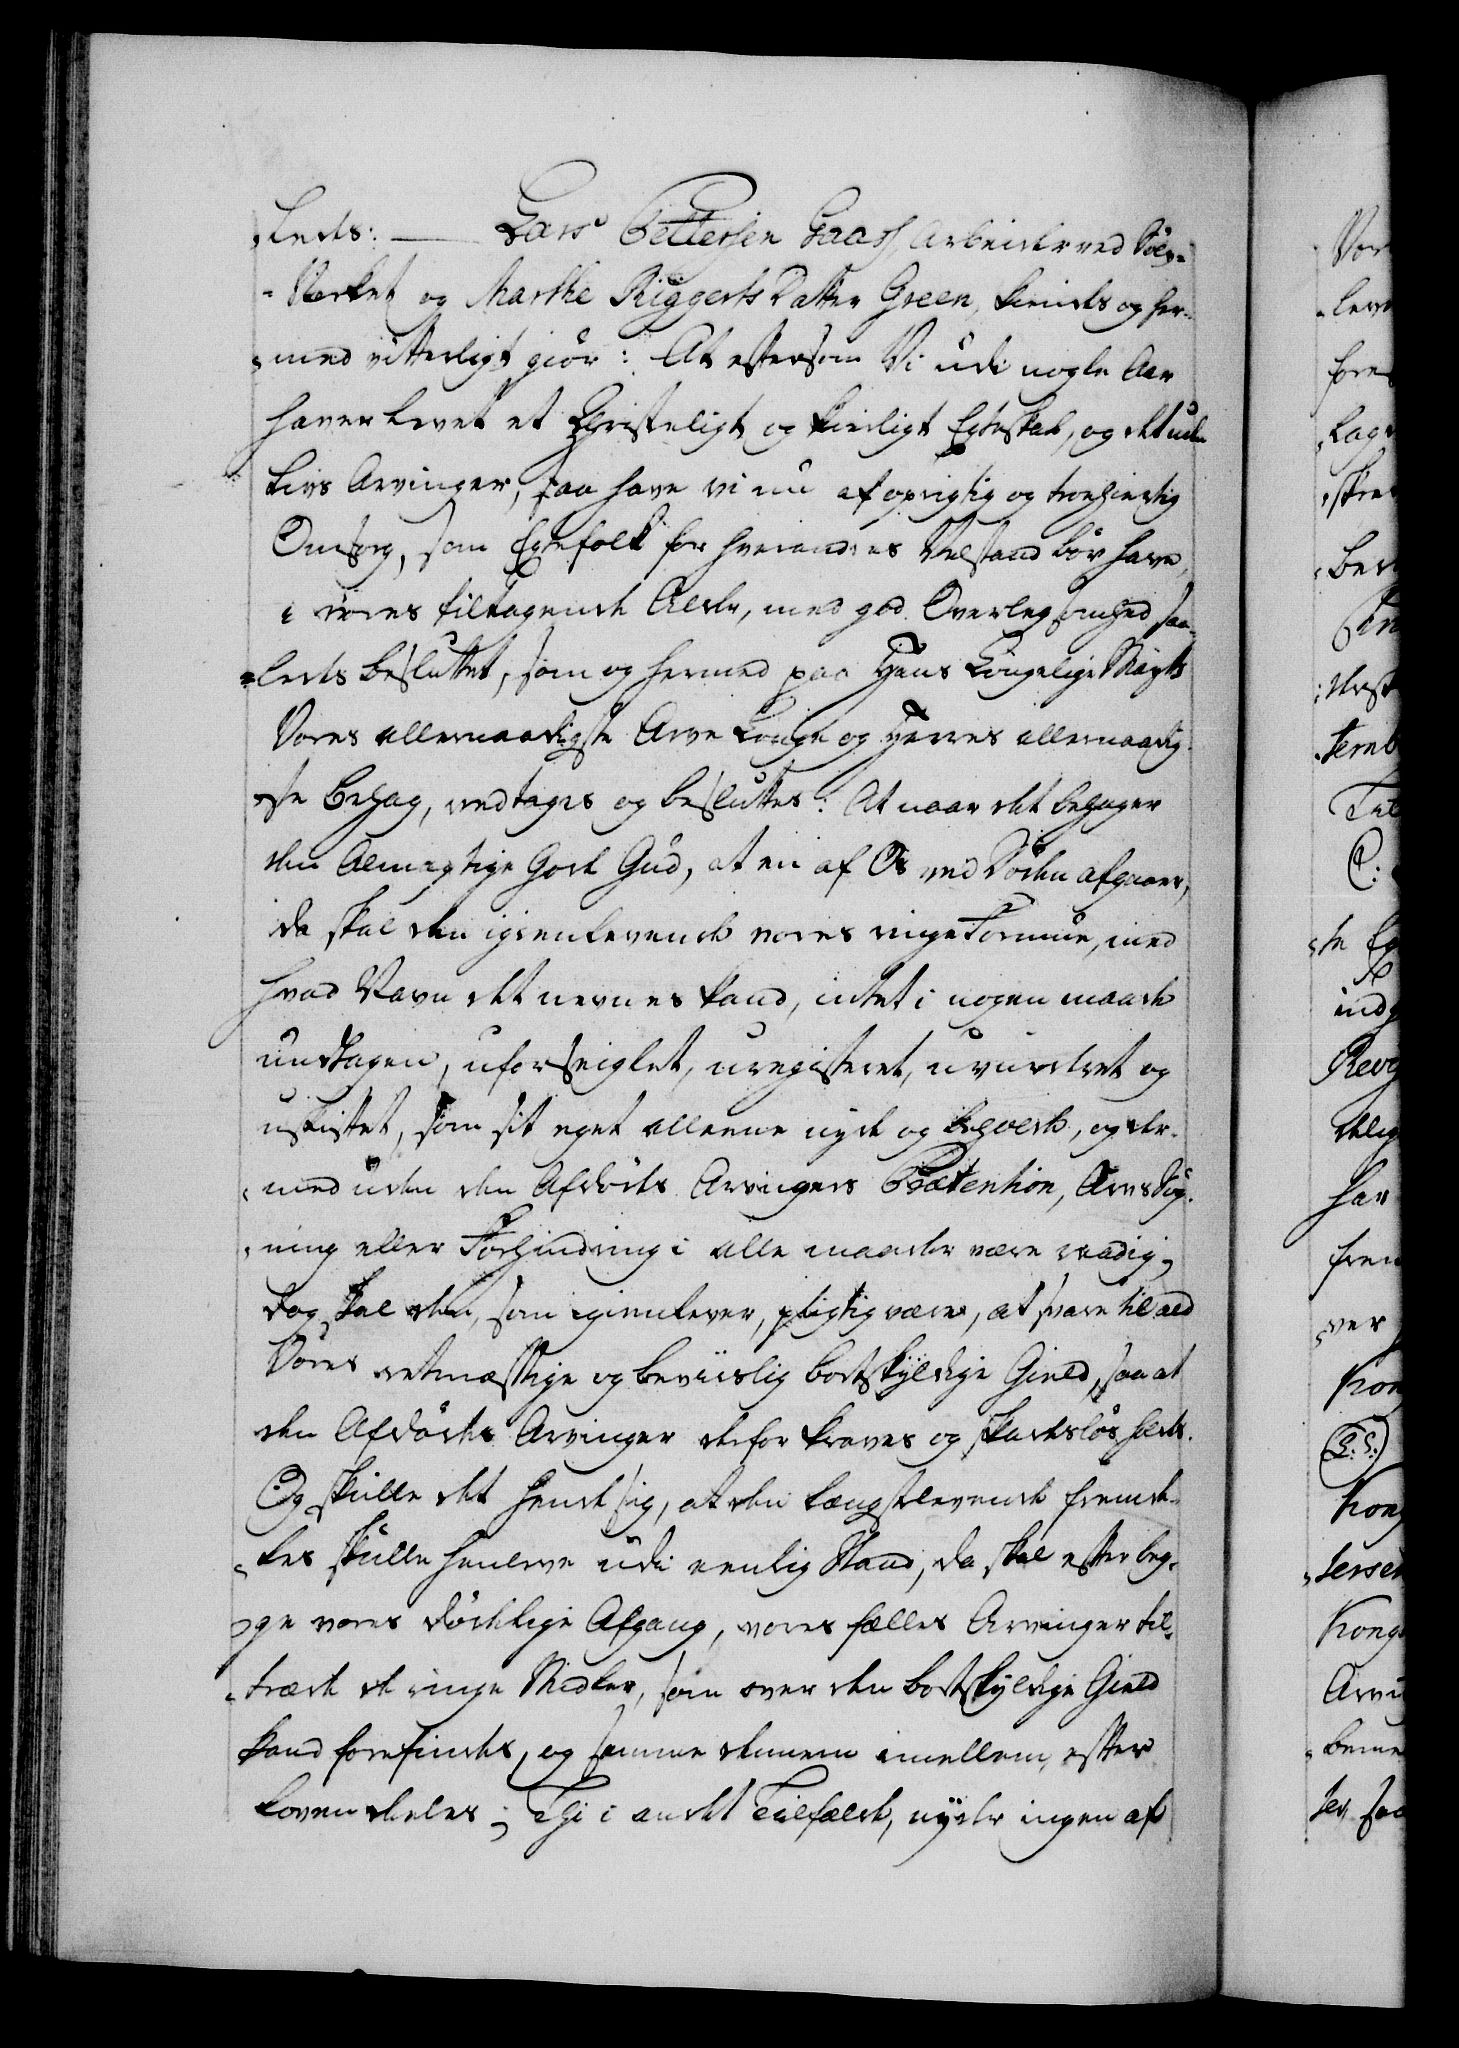 leeds: — Lars Pettersen Gaas, Arbeider ved Sølv-
-Verket og Marthe Riggerts Datter Green, kiendes og her-
-med vitterligt giør: At eftersom Vi udi nogle Aar
haver levet et Christeligt og kierligt Egteskab, og det uden
Livs Arvinger, saa have vi nu af oprigtig og troehiertig
Omsorg, som Egtefolk for hverandres Velstand bør have,
i vores tiltagende Alder, med god Overlegsomhed saa-
-leedes besluttet, som og hermed paa Hans Kongelige Mayts
Vores allernaadigste Arve Konge og Herres allernaadig-
ste Behag, vedtages og besluttes: At naar det behager
den Almegtige Gode Gud, at en af Os ved Døden afgaaer,
da skal den igienlevende vores ringe Formue, med
hvad Navn det nevnes kand, intet i nogen maade
undtagen, uforseiglet, uregisteret, uvurderet og
uskiftet, som sit eget alleene nyde og beholde, og der-
-med uden den Afdødes Arvingers Prætention, Arvs Søg-
-ning eller Forhindring i alle maader være raadig;
dog skal den, som igienlever, pligtig være, at svare til all
Vores retmæssige og beviislig bortskyldige Gield, saa at
den Afdødes Arvinger derfor kraves og skadesløs holdes.
Og skulle det hende sig, at den længstlevende fremde-
-les skulle henleve udi eenlig Stand, da skal efter beg-
-ge vores dødelige Afgang, vores fælles Arvinger til-
-træde de ringe Midler, som over den bortskyldige Gield
kand forefindes, og samme dennem imellem, efter
Loven deeles; Thi i andet Tilfælde, nyder ingen af